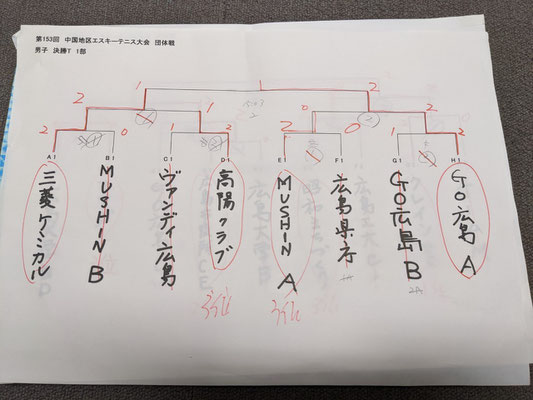 第153回 中国地区エスキーテニス大会 団体戦
男子 決勝T 1部
1 1 2
2 1 2
2 0 1 2 2 0 0 2
A1 B1 C1 D1 E1 F1 G1 H1
三菱ケミカル
MUSHIN B
ヴァンディ広島
高陽クラブ
MUSHIN A
広島県庁
GO広島 B
GO広島 A
3位 3位